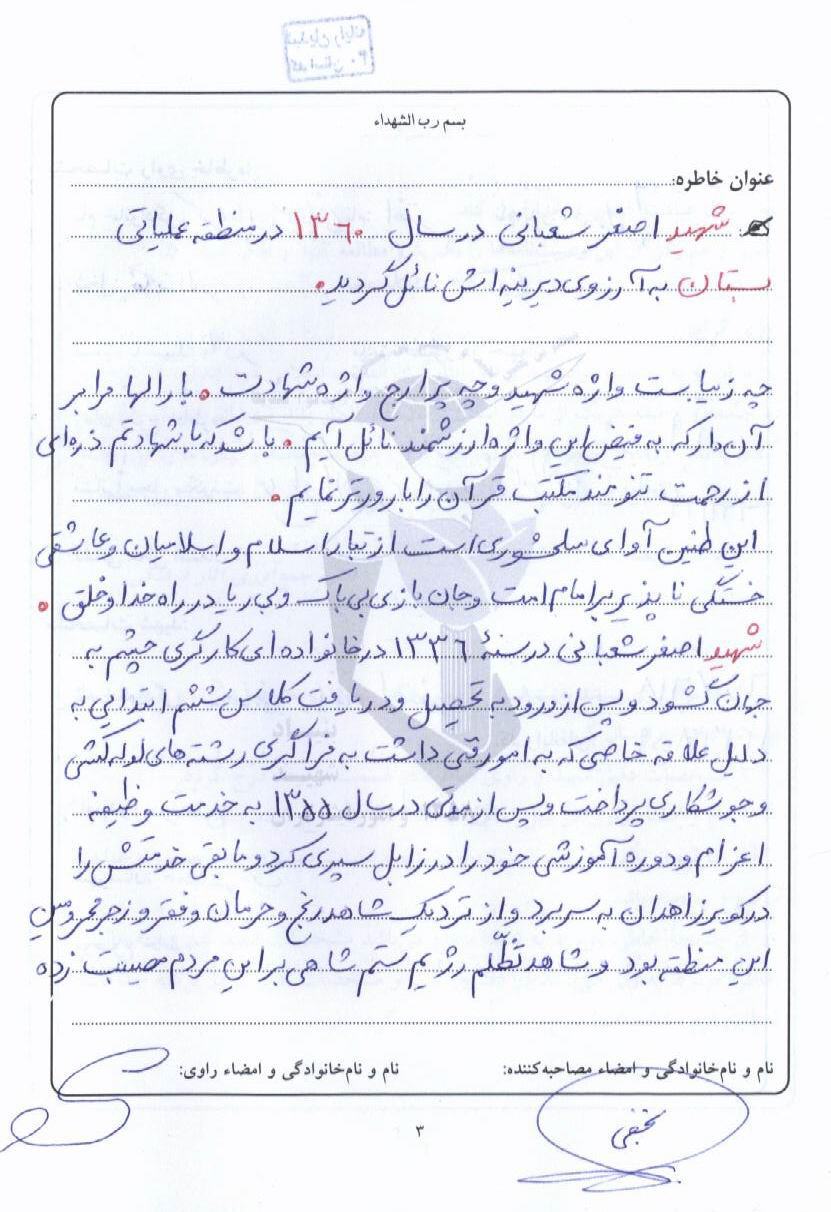 بسم رب الشهداء
عنوان خاطره:
شهید اصغر شعبانی در سال ۱۳۶۰ در منطقه عملیاتی
بستان به آرزوی دیرینه اش نائل گردید.
چه زیباست واژه شهید و چه پر ارج واژه شهادت. بارالها مرا بر
آن دار که به فیض این واژه ارزشمند نائل آیم. باشد که با شهادتم ذره ای
از رحمت تنومند مکتب قرآن را بارورتر نمایم.
این طنین آوای سلحشوری است از تبار اسلام و اسلامیان و عاشقی
خستگی ناپذیر بر امام امت و جان بازی بی باک و بی ریا در راه خدا و خلق.
شهید اصغر شعبانی در سنهٔ ۱۳۳۶ در خانواده ای کارگری چشم به
جهان گشود و پس از ورود به تحصیل و دریافت کلاس ششم ابتدایی به
دلیل علاقه خاصی که به امور فنی داشت به فراگیری رشته های لوله کشی
و جوشکاری پرداخت و پس از مدتی در سال ۱۳۵۵ به خدمت وظیفه
اعزام و دورهٔ آموزشی خود را در زابل سپری کرد و مابقی خدمتش را
در کویر زاهدان به سر برد و از نزدیک شاهد رنج و حرمان و فقر و زجر محرومین
این منطقه بود و شاهد تظلّم رژیم ستم شاهی بر این مردم مصیبت زده
نام و نام‌خانوادگی و امضاء مصاحبه‌کننده:
نام و نام‌خانوادگی و امضاء راوی:
نجفی
۳